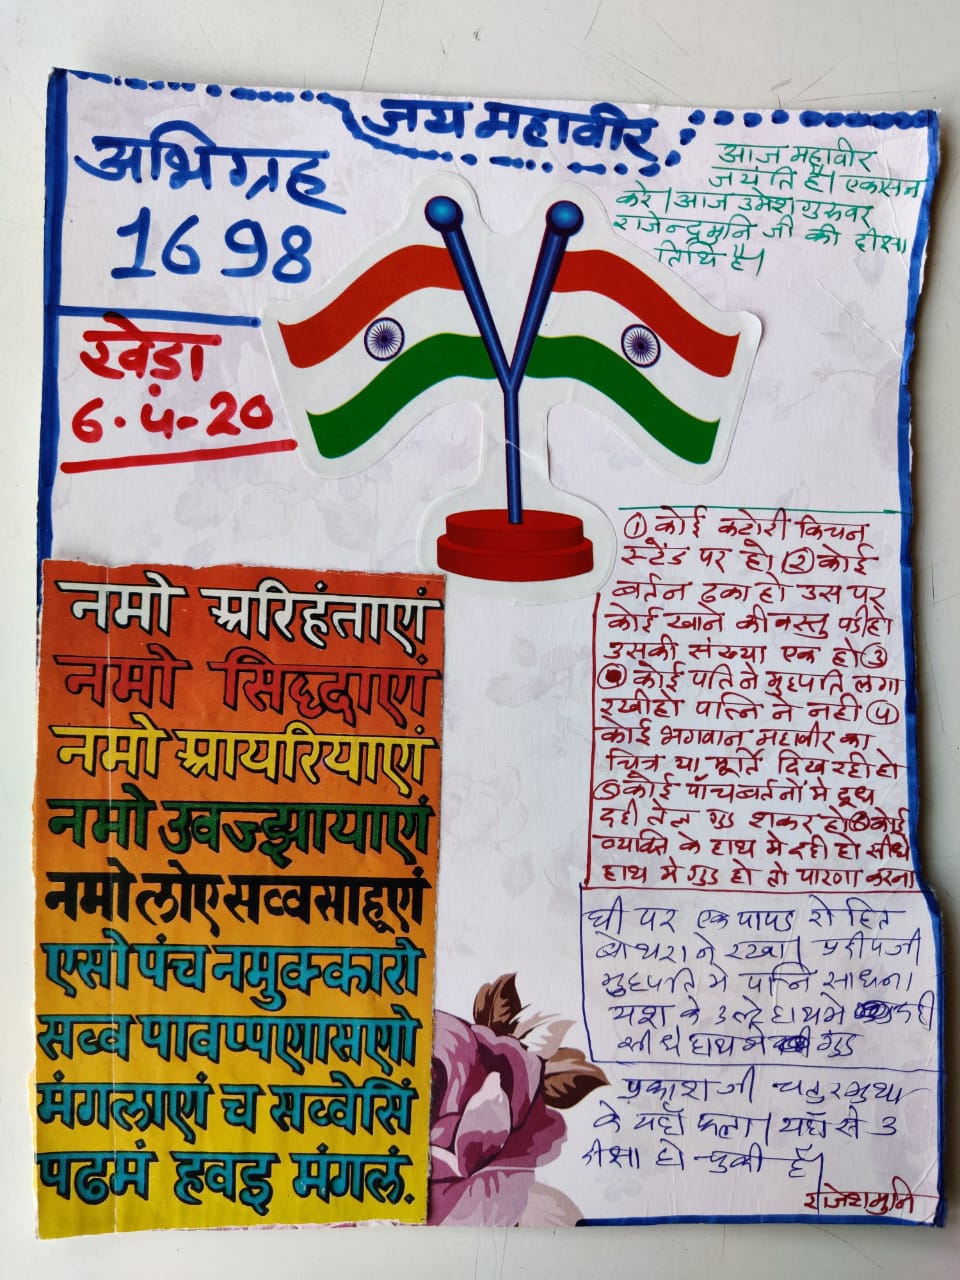 जय महावीर
अभिग्रह
1698
आज महावीर
जयंति है। एकासन
करे। आज उमेश गुरुवर
राजेन्द्रमुनि जी की दीक्षा
तिथि है।
खेड़ा
6.4-20
① कोई कटोरी किचन
स्टेंड पर हो। ② कोई
बर्तन ढका हो उस पर
कोई खाने की वस्तु पडी हो
उसकी संख्या एक हो ③
कोई पति ने मुहपति लगा
रखी हो पत्नि ने नही ④
कोई भगवान महावीर का
चित्र या मूर्ति दिख रही हो
⑤ कोई पाँच बर्तनो मे दूध
दही तेल गुड शकर हो ⑥ कोई
व्यक्ति के हाथ मे दही हो सीधे
हाथ मे गुड हो तो पारणा करना
घी पर एक पापड रोहित
बोथरा ने रखा। प्रदीपजी
मुहपति मे पत्नि साधना
यश के उल्टे हाथ मे दही
सीधे हाथ मे गुड
प्रकाश जी चतुरमुथा
के यहाँ फला। यहाँ से 3
दीक्षा हो चुकी है।
राजेशमुनि
नमो अरिहंताएं
नमो सिद्दाएं
नमो आयरियाएं
नमो उवज्झायाएं
नमो लोए सव्वसाहूएं
एसो पंच नमुक्कारो
सव्व पावप्पणासणो
मंगलाएं च सव्वेसिं
पढमं हवइ मंगलं.